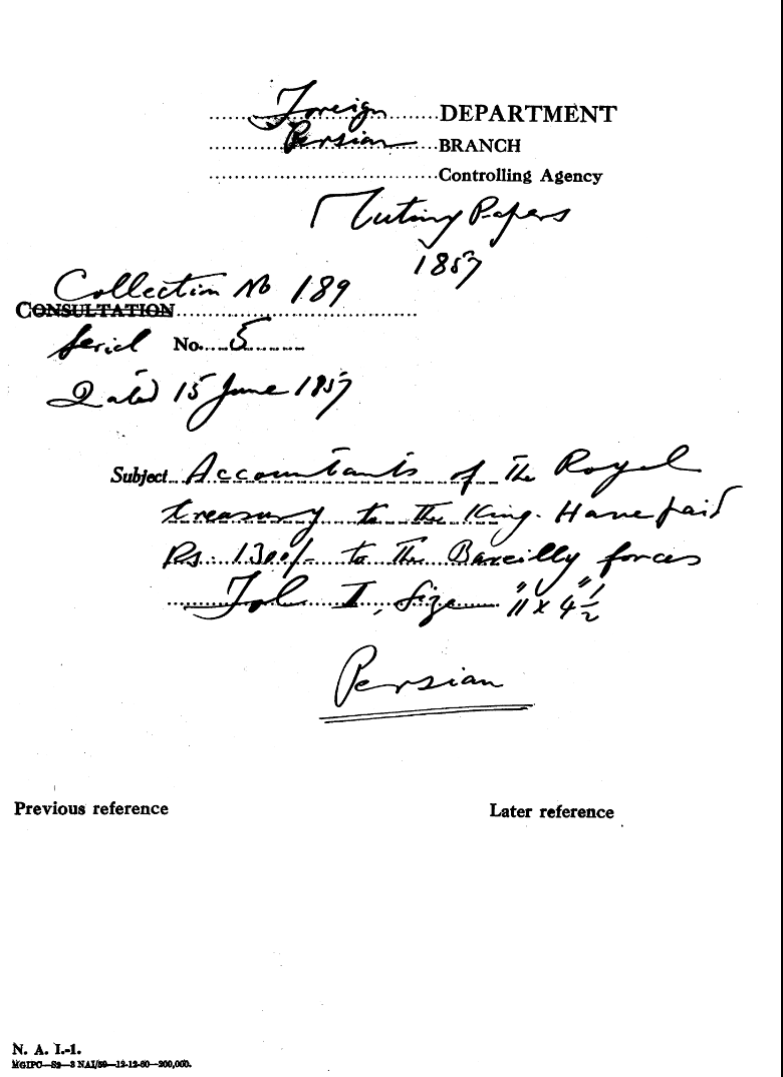 Foreign DEPARTMENT
Persian BRANCH
Controlling Agency
Mutiny Papers
1857
Collection No 189
CONSULTATION
Serial No. 5
Dated 15 June 1857
Subject Accountants of the Royal
treasury to the King. Have paid
Rs. 1300/- to the Bareilly forces
Fol. I, Size 11" x 4½"
Persian
Previous reference Later reference
N. A. I.-1.
MGIPC—S2—3 NAI/59—12-12-60—200,000.